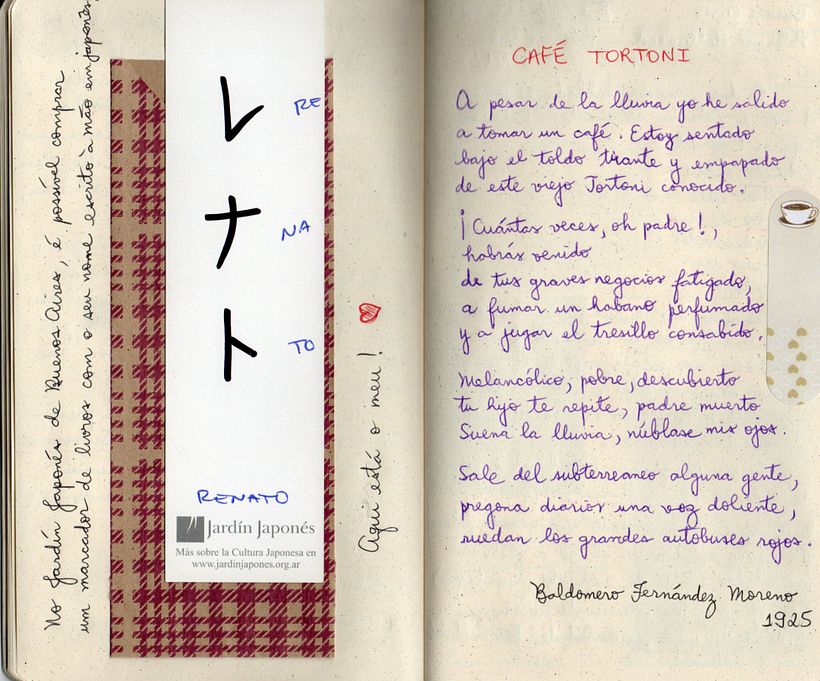 No Jardín Japonés de Buenos Aires, é possível comprar
um marcador de livros com o seu nome escrito à mão em japonês,
レ RE
ナ NA
ト TO
RENATO
Jardín Japonés
Más sobre la Cultura Japonesa en
www.jardinjapones.org.ar
Aqui está o meu!
CAFÉ TORTONI
A pesar de la lluvia yo he salido
a tomar un café. Estoy sentado
bajo el toldo tirante y empapado
de este viejo Tortoni conocido.
¡Cuántas veces, oh padre!,
habrás venido
de tus graves negocios fatigado,
a fumar un habano perfumado
y a jugar el tresillo consabido.
Melancólico, pobre, descubierto
tu hijo te repite, padre muerto
Suena la lluvia, núblase mis ojos.
Sale del subterraneo alguna gente,
pregona diarios una voz doliente,
ruedan los grandes autobuses rojos.
Baldomero Fernández Moreno
1925